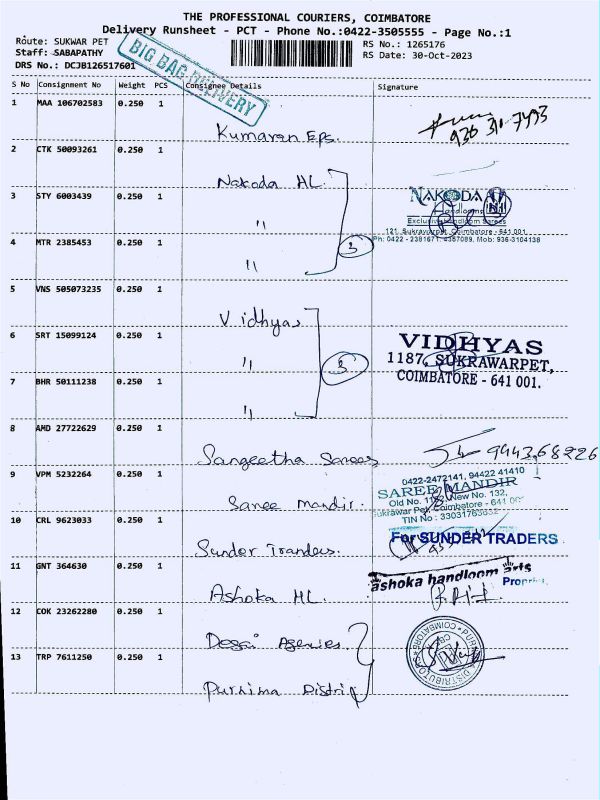 THE PROFESSIONAL COURIERS, COIMBATORE
Delivery Runsheet - PCT - Phone No.:0422-3505555 - Page No.:1
Route: SUKWAR PET
RS No.: 1265176
Staff: SABAPATHY
RS Date: 30-Oct-2023
DRS No.: DCJB126517601
BIG BAG DELIVERY
S No Consignment No Weight PCS Consignee Details Signature
1 MAA 106702583 0.250 1
Kumaran Eps.
936 31-7493
2 CTK 50093261 0.250 1
Nakoda HL.
3 STY 6003439 0.250 1
"
NAKODA
Handlooms
Exclusive Handloom Sarees
121, Sukrawarpet, Coimbatore - 641 001.
Ph: 0422 - 2381671, 4387089, Mob: 936-3104138
4 MTR 2385453 0.250 1
"
3
5 VNS 505073235 0.250 1
Vidhyas
6 SRT 15099124 0.250 1
"
3
VIDHYAS
1187, SUKRAWARPET,
COIMBATORE - 641 001.
7 BHR 50111238 0.250 1
"
8 AMD 27722629 0.250 1
Sangeetha Sarees
9943,68226
9 VPM 5232264 0.250 1
Saree mandir.
0422-2472141, 94422 41410
SAREE MANDIR
New No. 132,
Sukrawar Pet, Coimbatore - 641 00
TIN No :
10 CRL 9623033 0.250 1
Sunder Tranders.
For SUNDER TRADERS
11 GNT 364630 0.250 1
Ashoka HL.
ashoka handloom arts
12 COK 23262280 0.250 1
Desai Agencies.
13 TRP 7611250 0.250 1
Purnima Distri